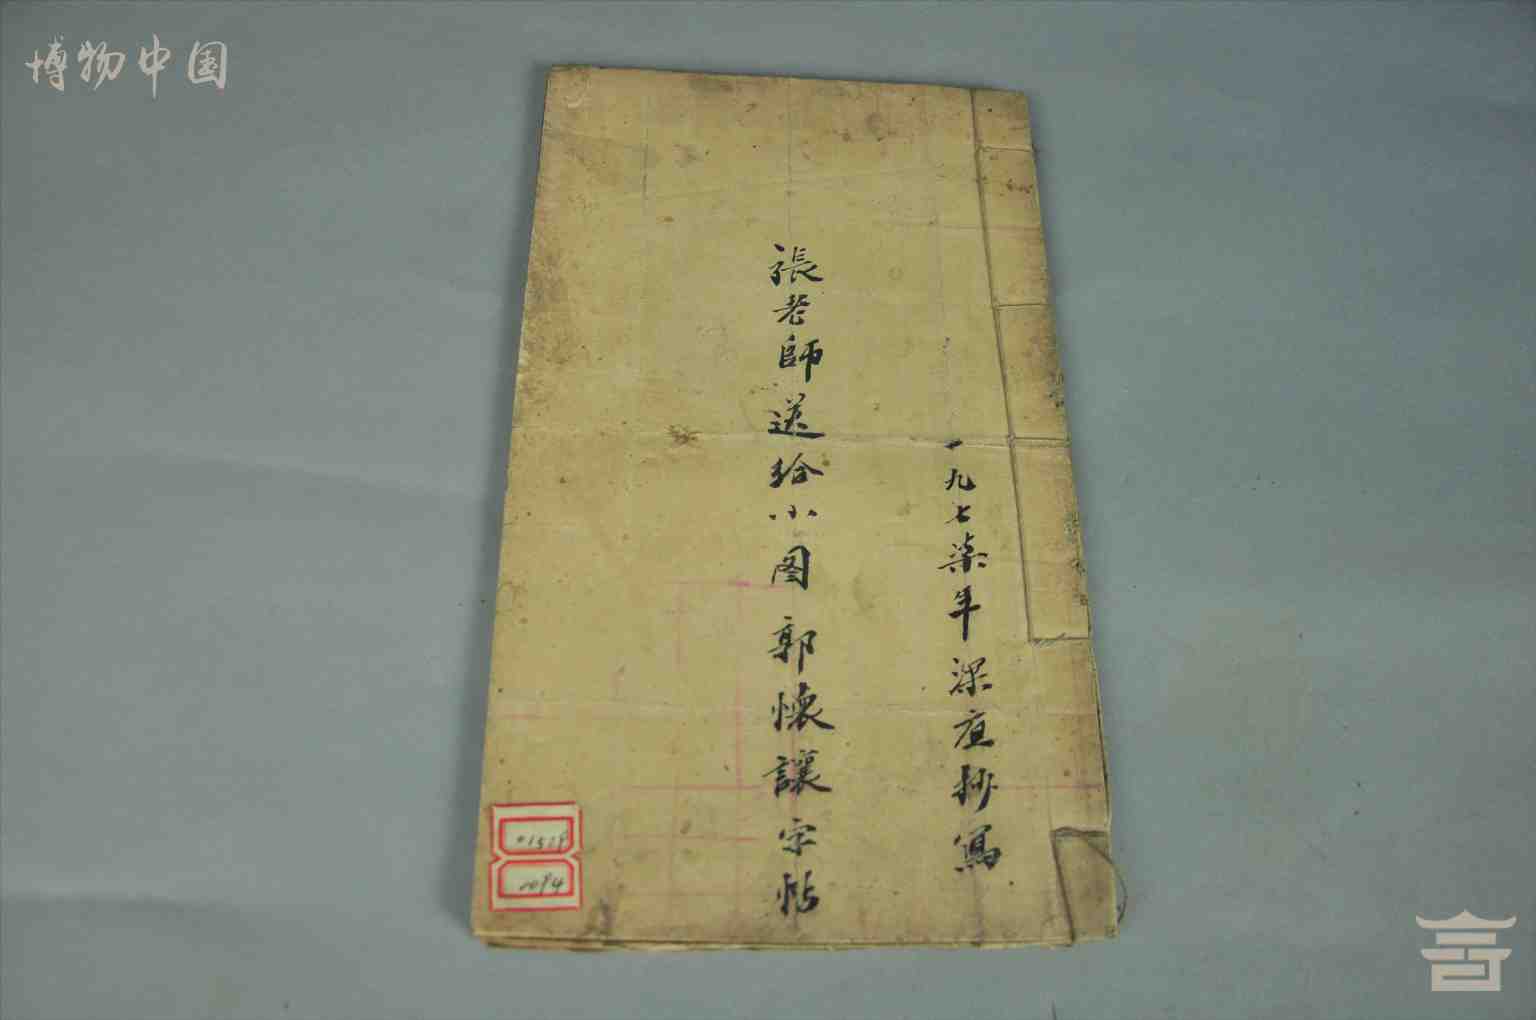 博物中国
一九七柒年深夜抄寫
張老師送给小图郭懷讓字帖
01519
0094